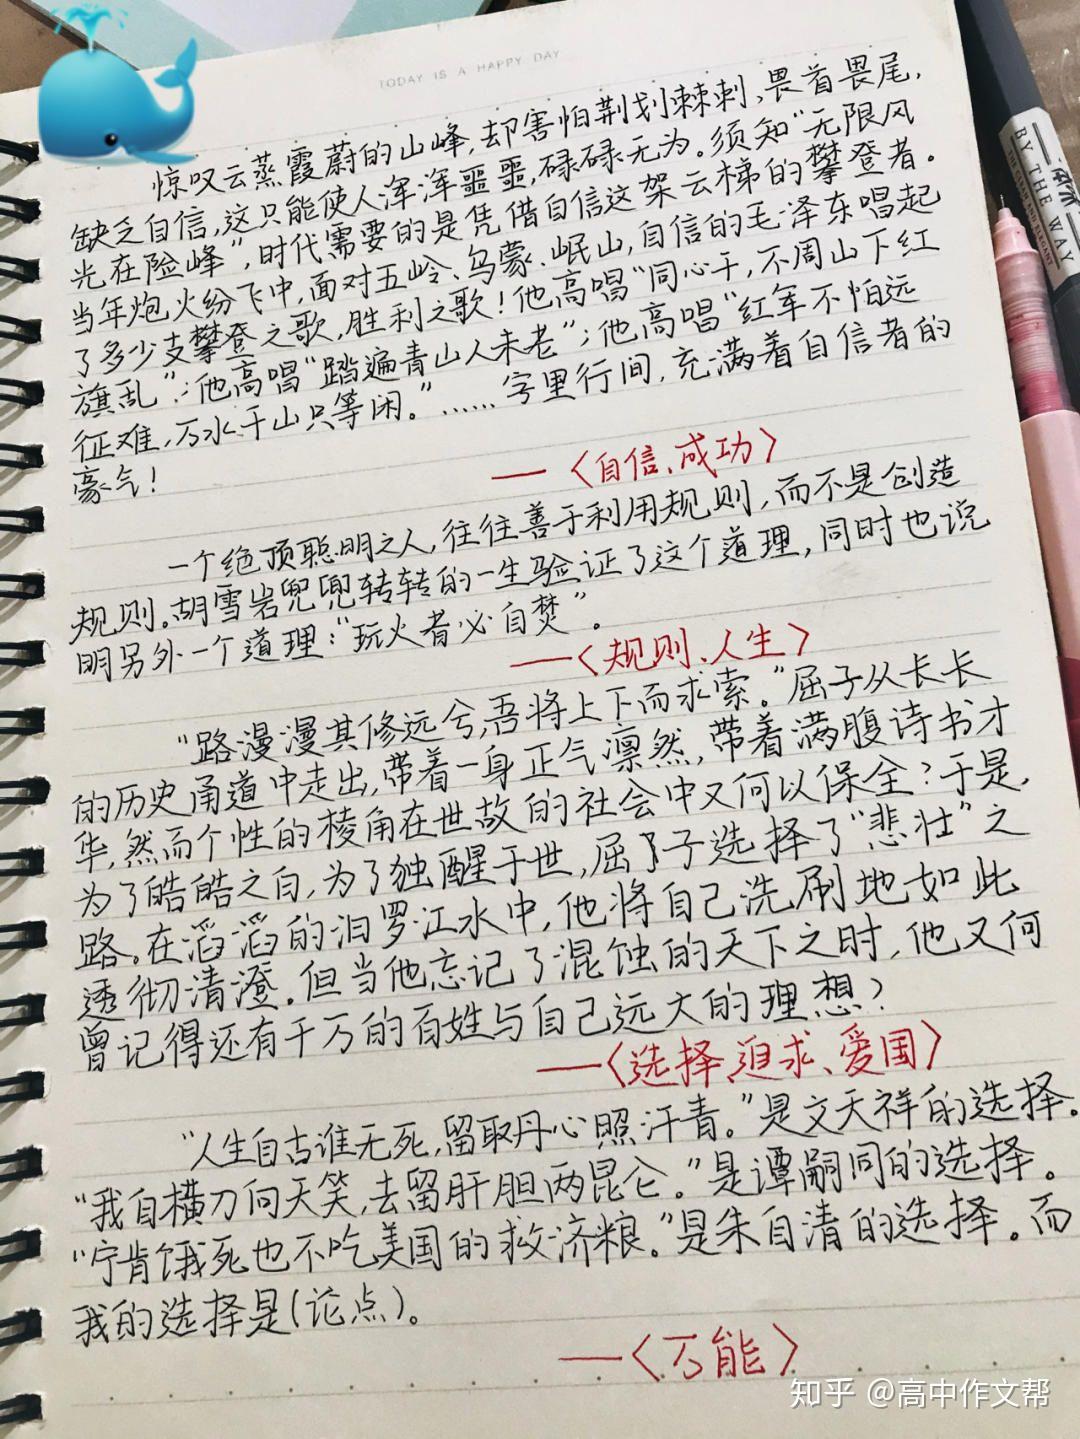 TODAY IS A HAPPY DAY
惊叹云蒸霞蔚的山峰,却害怕荆划棘刺,畏首畏尾,
缺乏自信,这只能使人浑浑噩噩,碌碌无为。须知“无限风
光在险峰”,时代需要的是凭借自信这架云梯的攀登者。
当年炮火纷飞中,面对五岭、乌蒙、岷山,自信的毛泽东唱起
了多少支攀登之歌,胜利之歌!他高唱“同心干,不周山下红
旗乱”;他高唱“踏遍青山人未老”;他高唱“红军不怕远
征难,万水千山只等闲。”……字里行间,充满着自信者的
豪气!
—〈自信、成功〉
一个绝顶聪明之人,往往善于利用规则,而不是创造
规则。胡雪岩兜兜转转的一生验证了这个道理,同时也说
明另外一个道理:“玩火者必自焚”。
—〈规则、人生〉
“路漫漫其修远兮,吾将上下而求索。”屈子从长长
的历史甬道中走出,带着一身正气凛然,带着满腹诗书才
华,然而个性的棱角在世故的社会中又何以保全?于是,
为了皓皓之白,为了独醒于世,屈子选择了“悲壮”之
路。在滔滔的汨罗江水中,他将自己洗刷地如此
透彻清澄。但当他忘记了混蚀的天下之时,他又何
曾记得还有千万的百姓与自己远大的理想?
—〈选择、追求、爱国〉
“人生自古谁无死,留取丹心照汗青。”是文天祥的选择。
“我自横刀向天笑,去留肝胆两昆仑。”是谭嗣同的选择。
“宁肯饿死也不吃美国的救济粮。”是朱自清的选择。而
我的选择是(论点)。
—〈万能〉
BY THE WAY
知乎 @高中作文帮